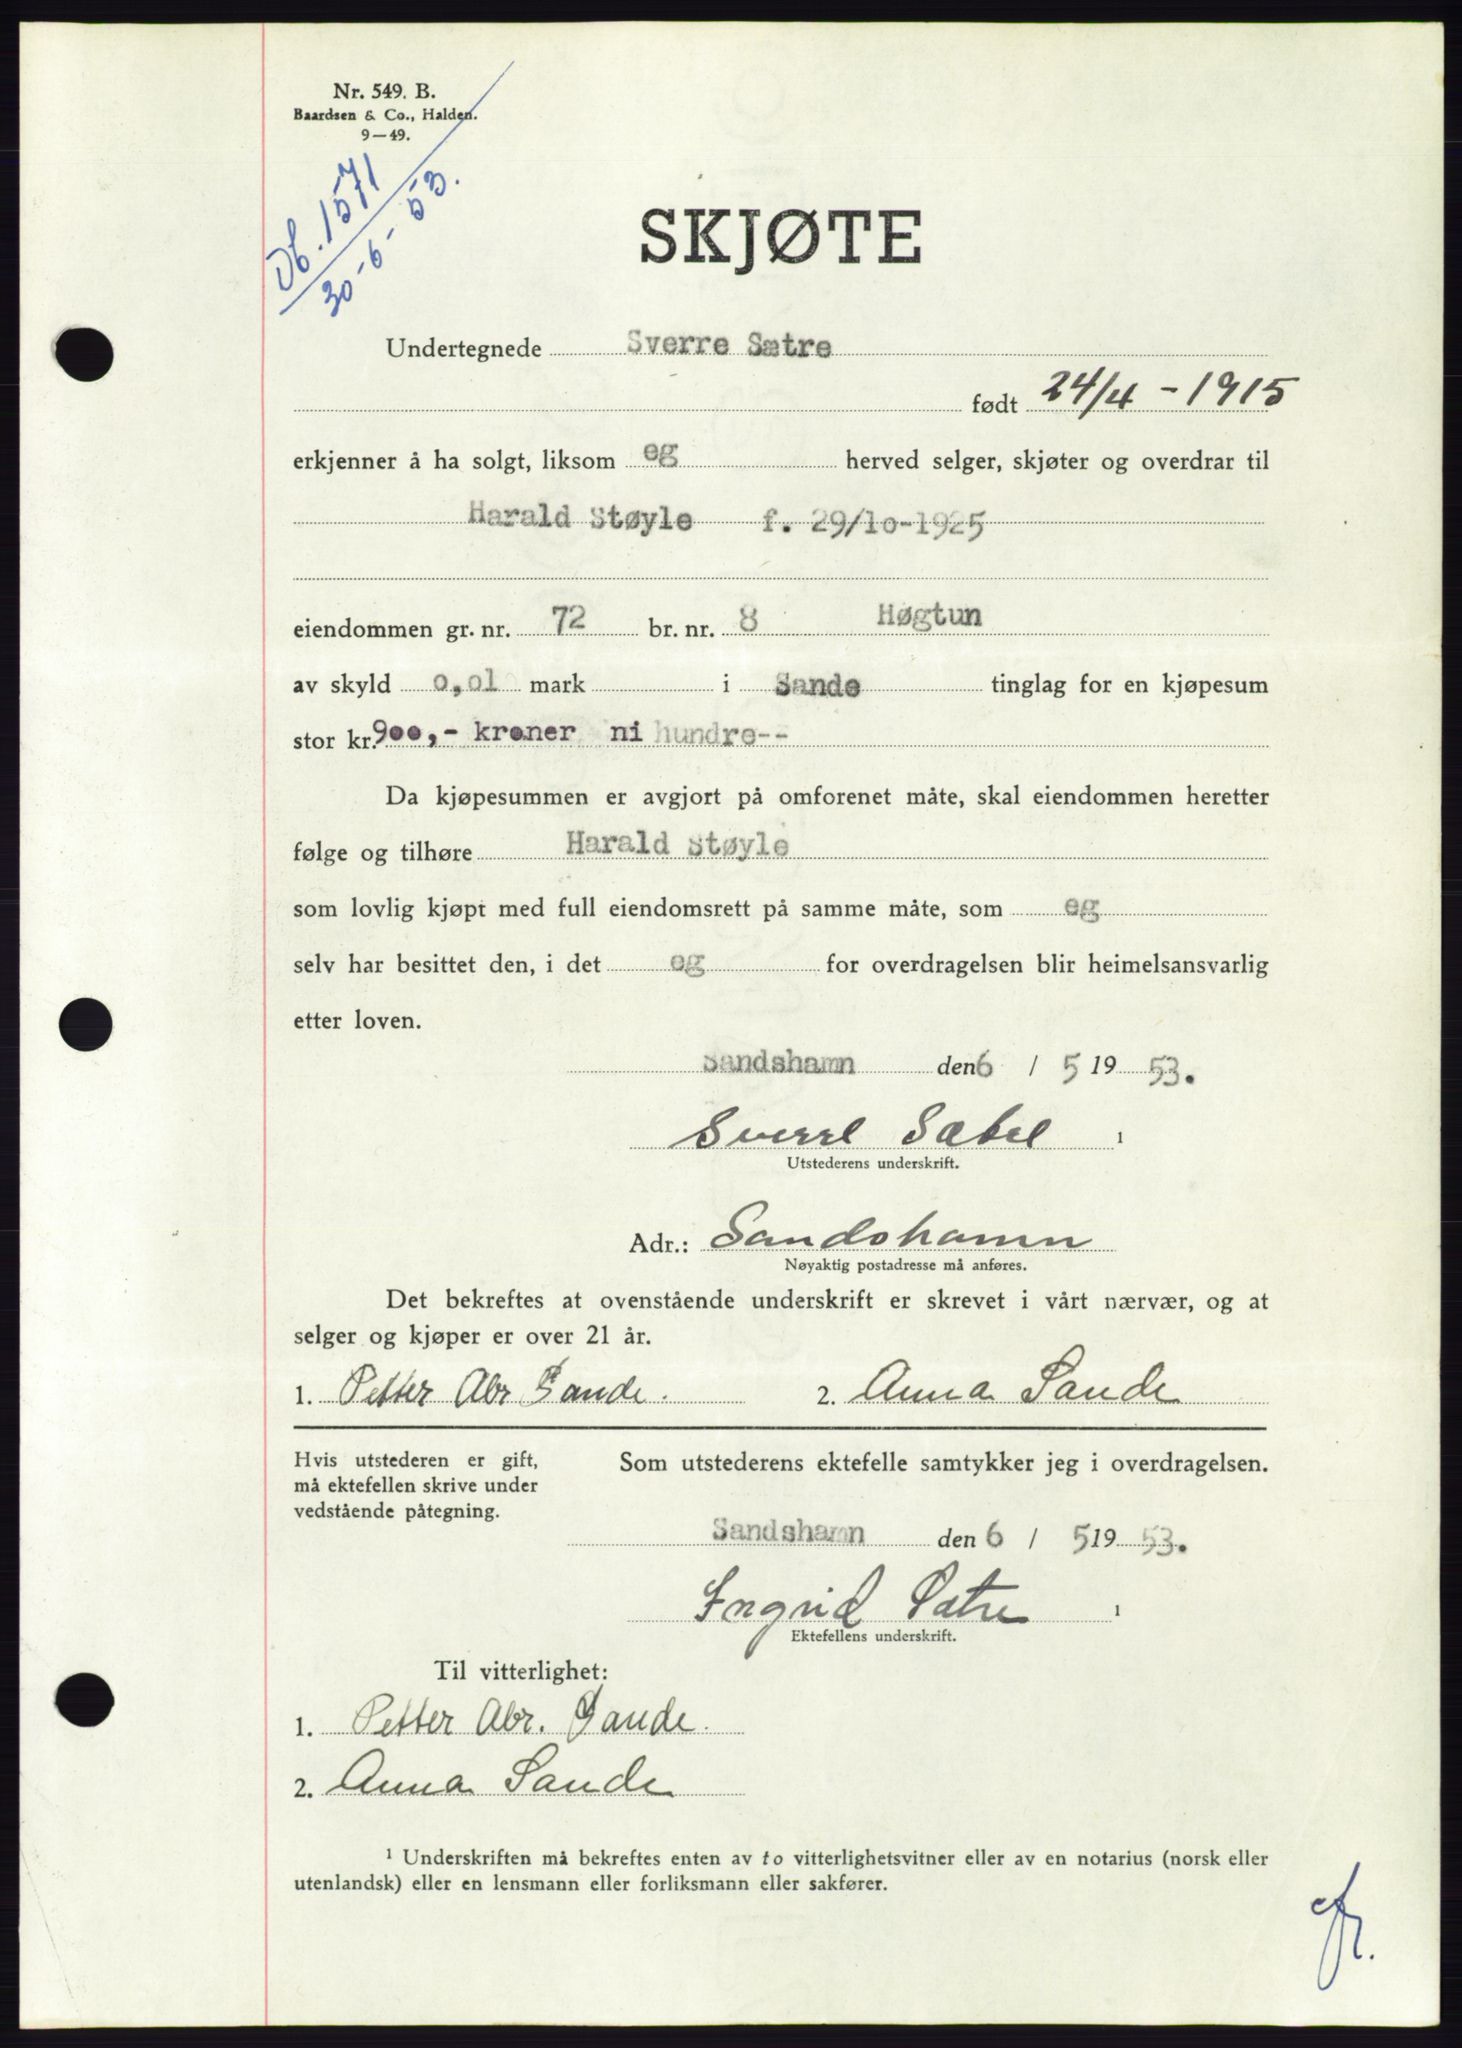 Nr. 549. B.
Baardsen & Co., Halden.
9—49.
Db. 1571
30-6-53.
SKJØTE
Undertegnede Sverre Sætre
født 24/4 - 1915
erkjenner å ha solgt, liksom eg herved selger, skjøter og overdrar til
Harald Støyle f. 29/10-1925
eiendommen gr. nr. 72 br. nr. 8 Høgtun
av skyld 0,01 mark i Sande tinglag for en kjøpesum
stor kr. 900,- kroner ni hundre--
Da kjøpesummen er avgjort på omforenet måte, skal eiendommen heretter
følge og tilhøre Harald Støyle
som lovlig kjøpt med full eiendomsrett på samme måte, som eg
selv har besittet den, i det eg for overdragelsen blir heimelsansvarlig
etter loven.
Sandshamn den 6 / 5 19 53.
Sverre Sætre 1
Utstederens underskrift.
Adr.: Sandshamn
Nøyaktig postadresse må anføres.
Det bekreftes at ovenstående underskrift er skrevet i vårt nærvær, og at
selger og kjøper er over 21 år.
1. Petter Abr Sande. 2. Anna Sande
Hvis utstederen er gift,
må ektefellen skrive under
vedstående påtegning.
Som utstederens ektefelle samtykker jeg i overdragelsen.
Sandshamn den 6 / 5 19 53.
Ingrid Sætre 1
Ektefellens underskrift.
Til vitterlighet:
1. Petter Abr. Sande.
2. Anna Sande
1 Underskriften må bekreftes enten av to vitterlighetsvitner eller av en notarius (norsk eller
utenlandsk) eller en lensmann eller forliksmann eller sakfører.